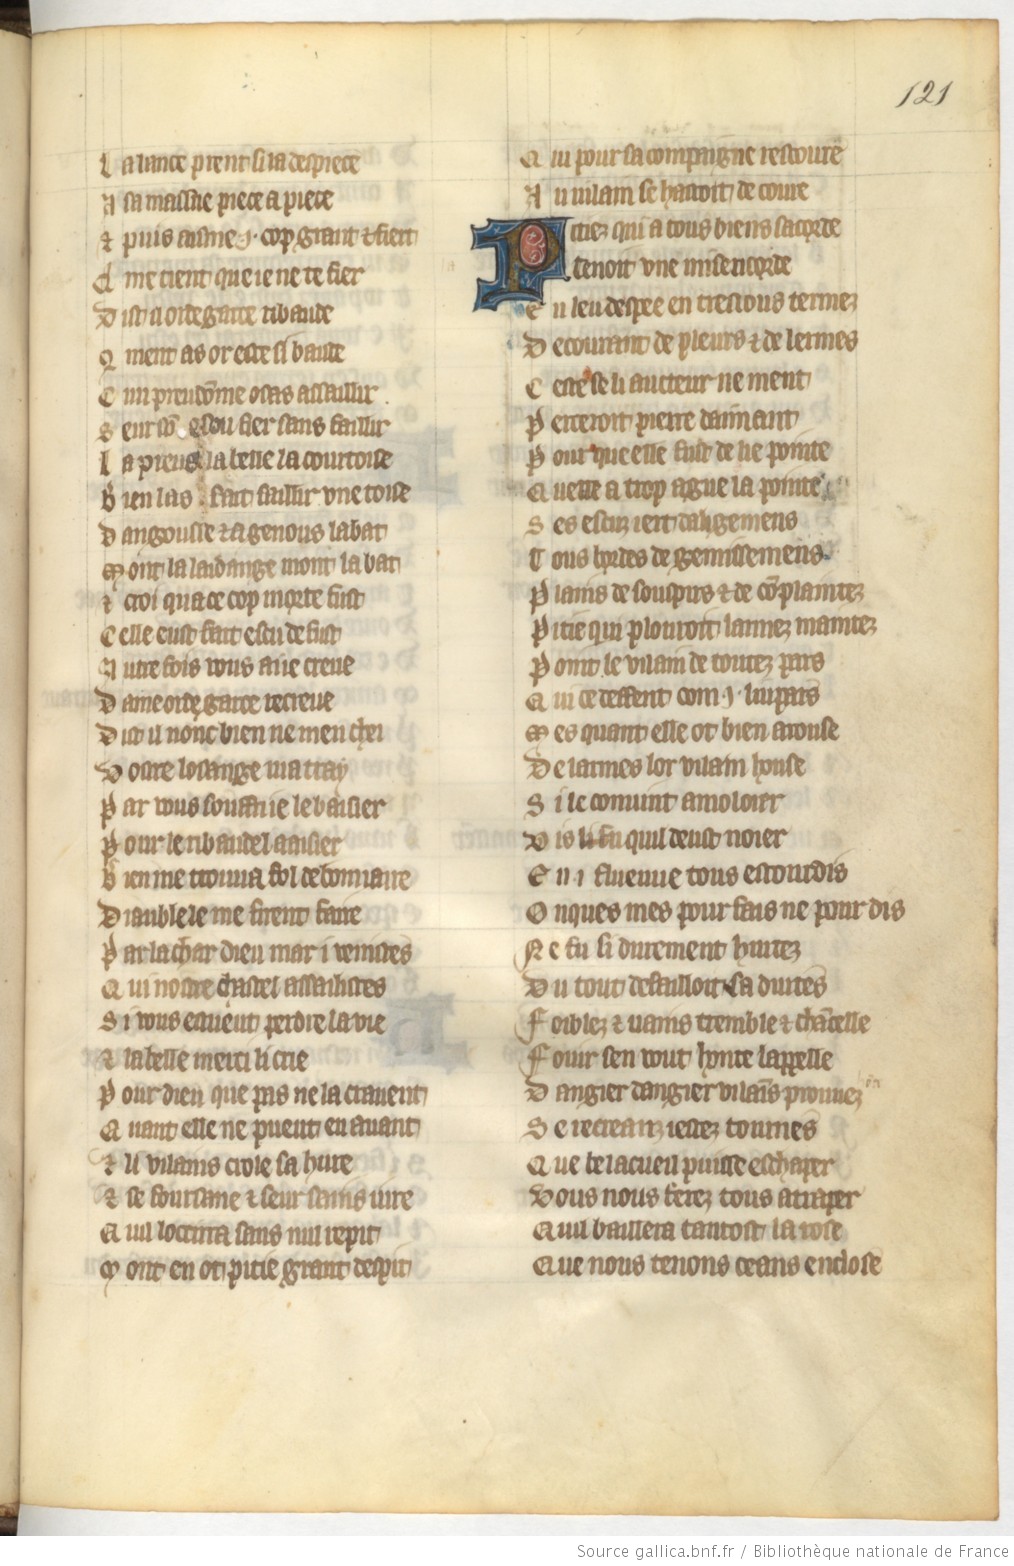 121
La lance prent si la despiece
A sa massue piece a piece
Et puis aisme .j. cop grant et fiert
A me tient que ie ne te fier
Dist il orde garce ribaude
Qment as or este si baude
Cun preudōme osas assaillir
Seur sō escu fier sans faillir
La preus la belle la courtoise
Bien las fait saillir vne toise
Dangoisse et a genous labat
Mont la laidange mont la bat
Et croi qua ce cop morte fust
Celle eust fait escu de fust
Autre fois vous ai ie creue
Dame orde garce recreue
Dist il nonc bien ne men chei
Vostre losange ma tray
Par vous souffri ie le baisier
Pour le ribaudel aaisier
Bien me trouua fol debonnaire
Diauble le me firent faire
Par la char dieu mar i venistes
Qui nostre chastel assaillistes
Si vous esteuent perdre la vie
Et la belle merci li crie
Pour dieu que pas ne la crauent
Quant elle ne pueut en auant
Et li vilains crole sa hure
Et se foursane et seur sains iure
Quil locirra sans nul repit
Mont en ot pitie grant despit
Qui pour sa compaigne rescourre
Au vilain se hastoit de corre
Pitiez qui a tous biens sacorde
Tenoit vne misericorde
En leu despee en trestous termez
Decourant de pleurs et de lermes
Ceste se li aucteur ne ment
Perceroit pierre daimant
Pour que elle fust de lie pointe
Quelle a trop ague la pointe
Ses escuz iert daligemens
Tous bordes de gemissemens
Plains de souspirs et de cōplaintez
Pitie qui plouroit larmez maintez
Point le vilain de toutez pars
Qui ce deffent com .j. liupars
Mes quant elle ot bien arouse
De larmes lor vilain house
Si le conuint amoloier
Vis li fu quil deust noier
En .i. flueuue tous estourdis
Onques mes pour fais ne pour dis
Ne fu si durement hurtez
Du tout defailloit sa durtes
Foiblez et uains tremble et chācelle
Fouir sen vout honte lappelle
Dangier dangier vilaīs prouuez
Se recreanz iestez tournes
Que bel acueil puisse eschaper
Vous nous ferez tous atraper
Quil baillera tantost la rose
Que nous tenons ceans enclose
Source gallica.bnf.fr / Bibliothèque nationale de France